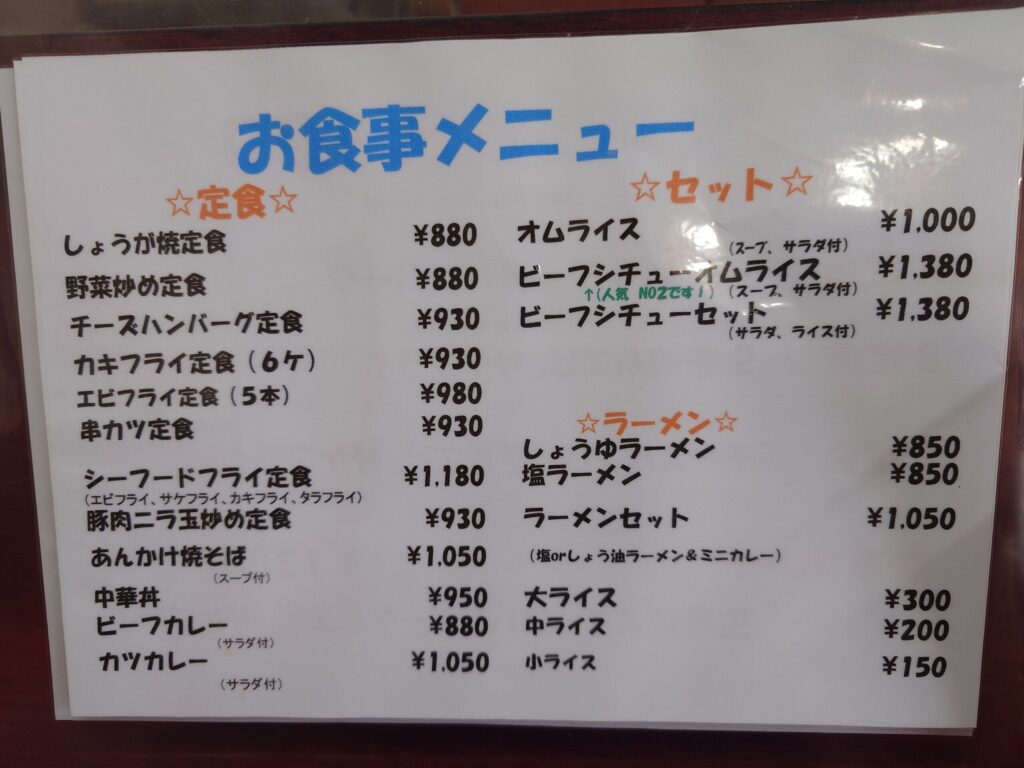 お食事メニュー
☆定食☆
しょうが焼定食 ¥880
野菜炒め定食 ¥880
チーズハンバーグ定食 ¥930
カキフライ定食（６ケ） ¥930
エビフライ定食（５本） ¥980
串カツ定食 ¥930
シーフードフライ定食 ¥1,180
（エビフライ、サケフライ、カキフライ、タラフライ）
豚肉ニラ玉炒め定食 ¥930
あんかけ焼そば ¥1,050
（スープ付）
中華丼 ¥950
ビーフカレー ¥880
（サラダ付）
カツカレー ¥1,050
（サラダ付）
☆セット☆
オムライス ¥1,000
（スープ、サラダ付）
ビーフシチューオムライス ¥1,380
↑（人気 NO2です！） （スープ、サラダ付）
ビーフシチューセット ¥1,380
（サラダ、ライス付）
☆ラーメン☆
しょうゆラーメン ¥850
塩ラーメン ¥850
ラーメンセット ¥1,050
（塩orしょう油ラーメン＆ミニカレー）
大ライス ¥300
中ライス ¥200
小ライス ¥150